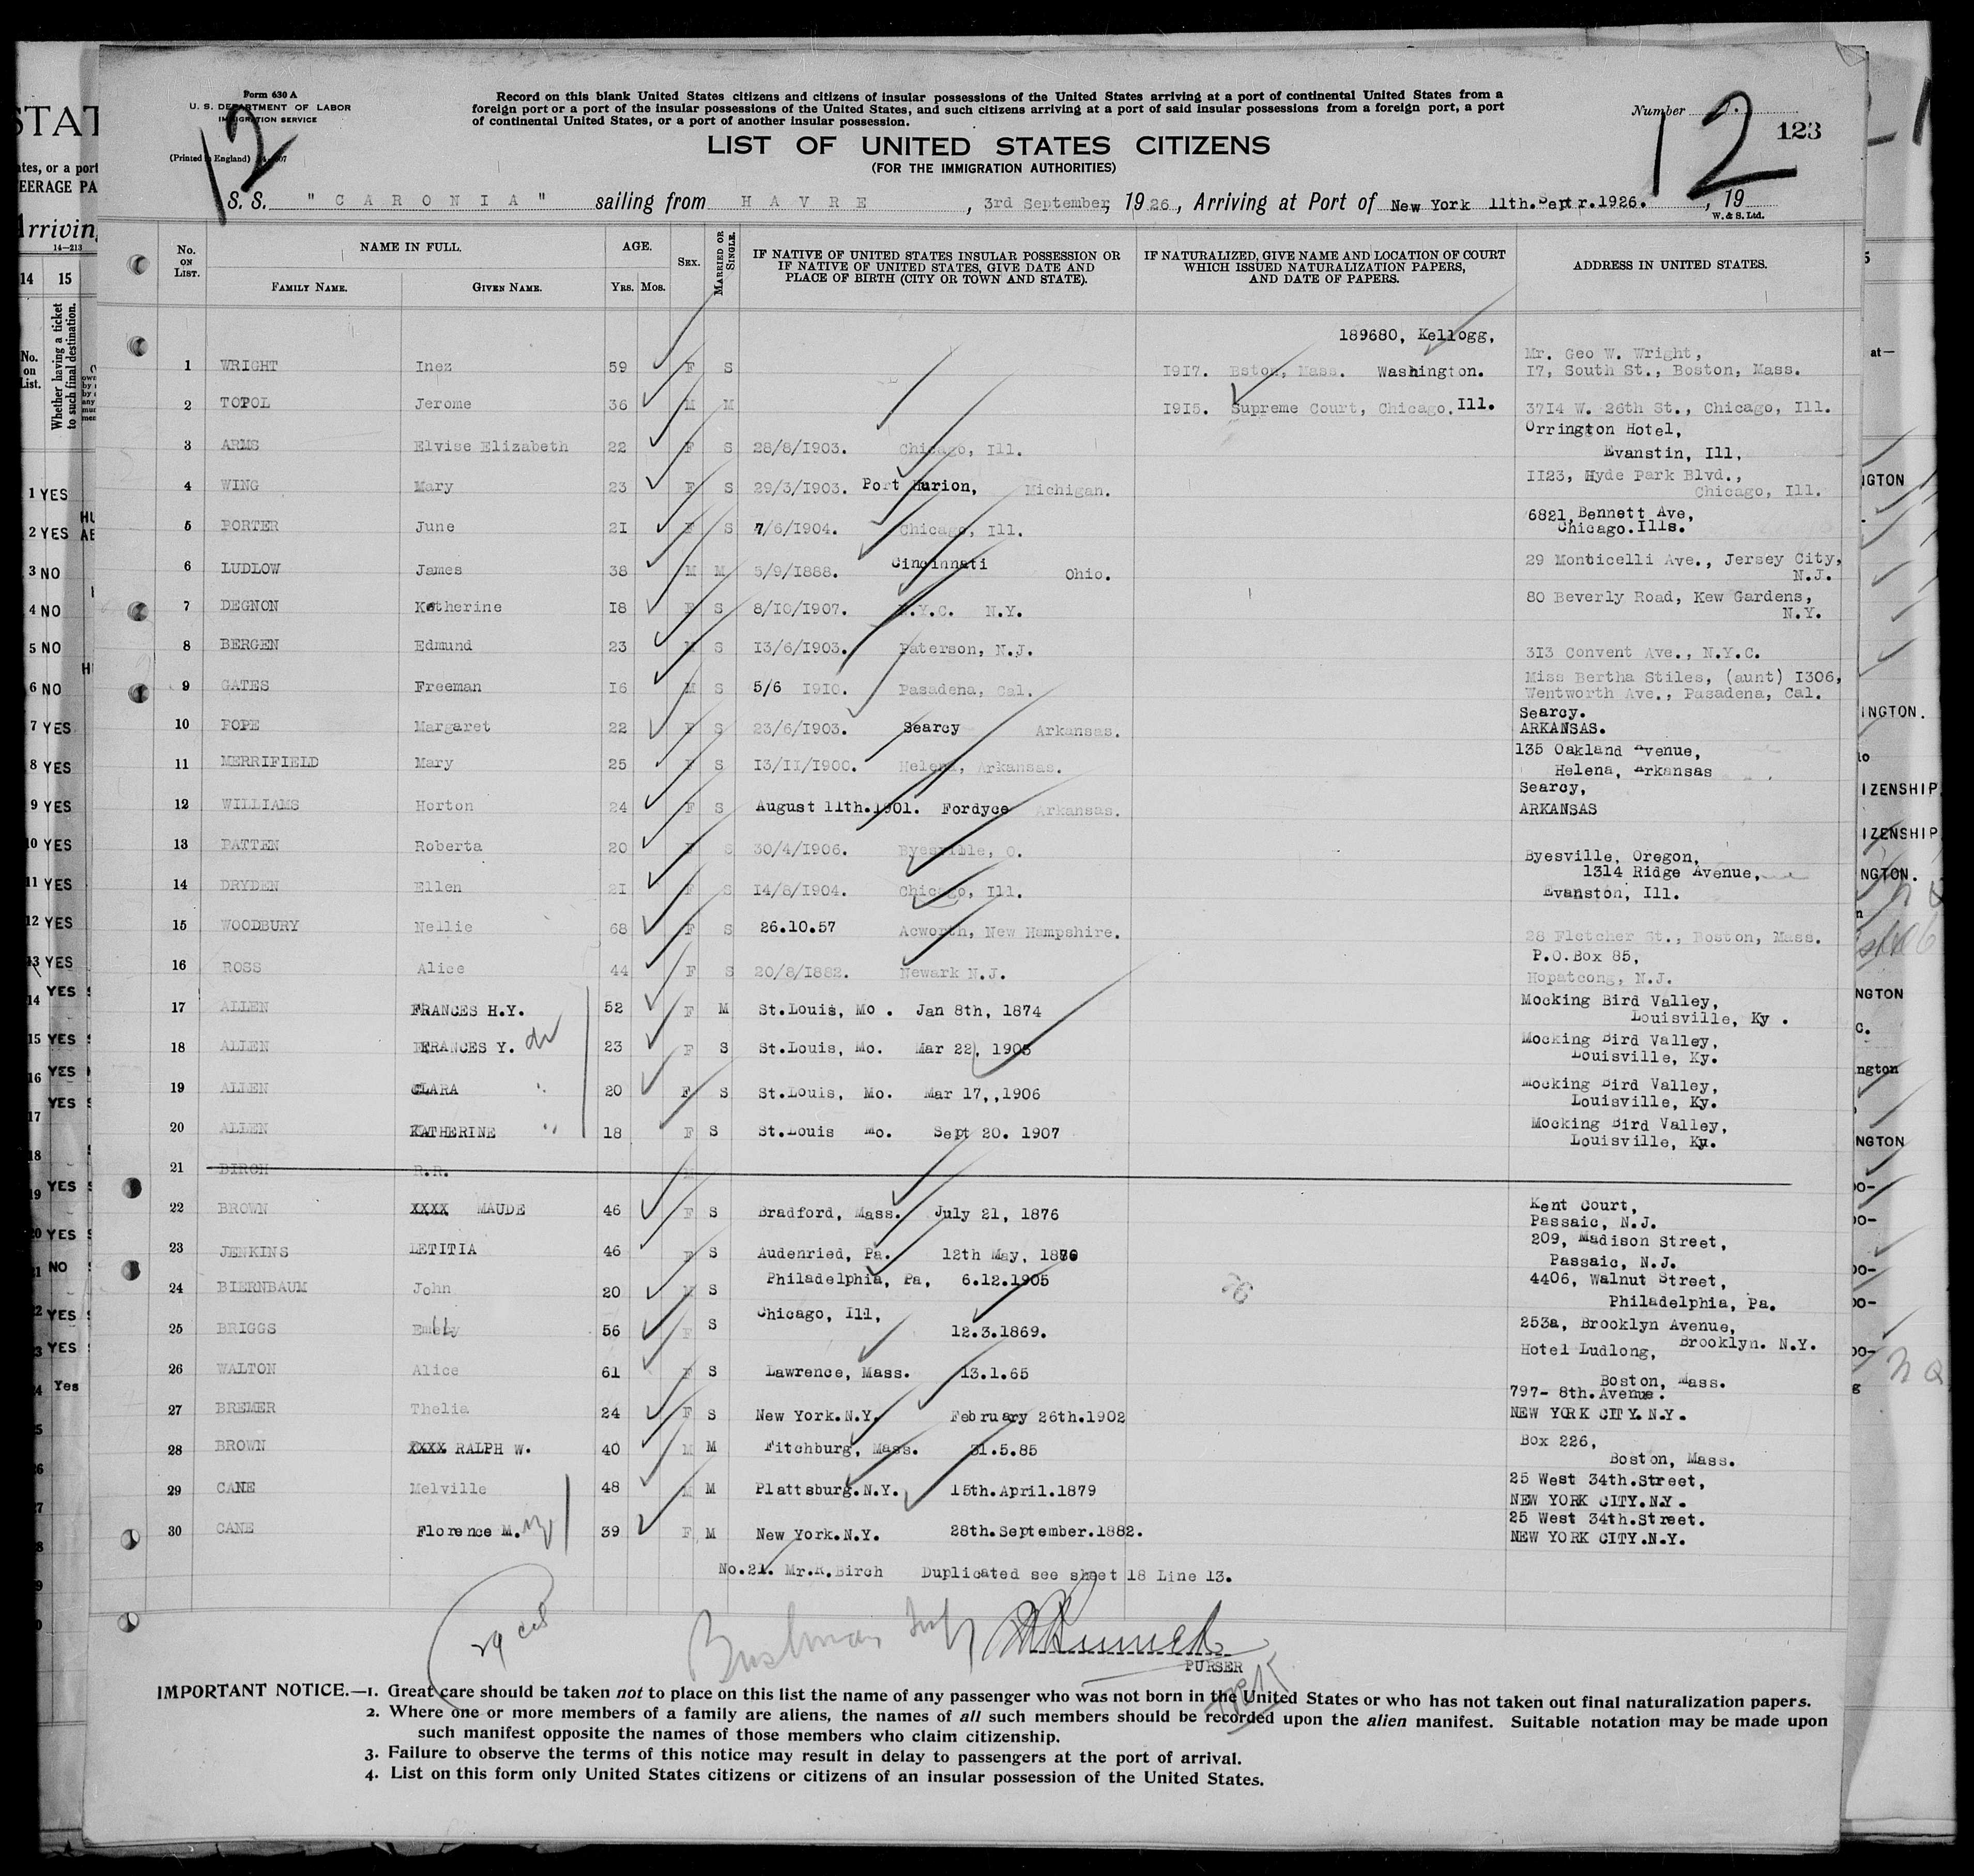 Form 630 A
U. S. DEPARTMENT OF LABOR
IMMIGRATION SERVICE
(Printed in England)
12
Record on this blank United States citizens and citizens of insular possessions of the United States arriving at a port of continental United States from a
foreign port or a port of the insular possessions of the United States, and such citizens arriving at a port of said insular possessions from a foreign port, a port
of continental United States, or a port of another insular possession.
Number
12
123
LIST OF UNITED STATES CITIZENS
(FOR THE IMMIGRATION AUTHORITIES)
S. S. "CARONIA" sailing from HAVRE, 3rd September, 1926, Arriving at Port of New York 11th.Septr.1926., 19
W. & S. Ltd.
No. ON LIST. NAME IN FULL. AGE. SEX. MARRIED OR SINGLE. IF NATIVE OF UNITED STATES INSULAR POSSESSION OR IF NATIVE OF UNITED STATES, GIVE DATE AND PLACE OF BIRTH (CITY OR TOWN AND STATE). IF NATURALIZED, GIVE NAME AND LOCATION OF COURT WHICH ISSUED NATURALIZATION PAPERS, AND DATE OF PAPERS. ADDRESS IN UNITED STATES.
FAMILY NAME. GIVEN NAME. YRS. MOS.
189680, Kellogg,
1 WRIGHT Inez 59 F S 1917. Bston, Mass. Washington. Mr. Geo W. Wright, 17, South St., Boston, Mass.
2 TOPOL Jerome 36 M M 1915. Supreme Court, Chicago, Ill. 3714 W. 26th St., Chicago, Ill.
3 ARMS Elvise Elizabeth 22 F S 28/8/1903. Chicago, Ill. Orrington Hotel, Evanstin, Ill,
4 WING Mary 23 F S 29/3/1903. Port Hurion, Michigan. 1123, Hyde Park Blvd., Chicago, Ill.
5 PORTER June 21 F S 7/6/1904. Chicago, Ill. 6821, Bennett Ave, Chicago.Ills.
6 LUDLOW James 38 M M 5/9/1888. Cincinnati Ohio. 29 Monticelli Ave., Jersey City, N.J.
7 DEGNON Katherine 18 F S 8/10/1907. N.Y.C. N.Y. 80 Beverly Road, Kew Gardens, N.Y.
8 BERGEN Edmund 23 M S 13/6/1903. Paterson, N.J. 313 Convent Ave., N.Y.C.
9 GATES Freeman 16 M S 5/6 1910. Pasadena, Cal. Miss Bertha Stiles, (aunt) 1306, Wentworth Ave., Pasadena, Cal.
10 POPE Margaret 22 F S 23/6/1903. Searcy Arkansas. Searcy. ARKANSAS.
11 MERRIFIELD Mary 25 F S 13/11/1900. Helena, Arkansas. 135 Oakland Avenue, Helena, Arkansas
12 WILLIAMS Horton 24 F S August 11th.1901. Fordyce Arkansas. Searcy, ARKANSAS
13 PATTEN Roberta 20 F S 30/4/1906. Byesville, O. Byesville, Oregon,
14 DRYDEN Ellen 21 F S 14/8/1904. Chicago, Ill. 1314 Ridge Avenue, Evanston, Ill.
15 WOODBURY Nellie 68 F S 26.10.57 Acworth, New Hampshire. 28 Fletcher St., Boston, Mass.
16 ROSS Alice 44 F S 20/8/1882. Newark N.J. P.O.Box 85, Hopatcong, N.J.
17 ALLEN FRANCES H.Y. 52 F M St.Louis, Mo . Jan 8th, 1874 Mocking Bird Valley, Louisville, Ky .
18 ALLEN FRANCES Y. 23 F S St.Louis, Mo. Mar 22, 1903 Mocking Bird Valley, Louisville, Ky.
19 ALLEN CLARA 20 F S St.Louis, Mo. Mar 17,,1906 Mocking Bird Valley, Louisville, Ky.
20 ALLEN KATHERINE 18 F S St.Louis Mo. Sept 20. 1907 Mocking Bird Valley, Louisville, Ky.
21 BIRCH R.R. M
22 BROWN XXXX MAUDE 46 F S Bradford, Mass. July 21, 1876 Kent Court, Passaic, N.J.
23 JENKINS LETITIA 46 F S Audenried, Pa. 12th May, 1880 209, Madison Street, Passaic, N.J.
24 BIERNBAUM John 20 M S Philadelphia, Pa, 6.12.1905 4406, Walnut Street, Philadelphia, Pa.
25 BRIGGS 56 F S Chicago, Ill, 12.3.1869. 253a, Brooklyn Avenue, Brooklyn. N.Y.
26 WALTON Alice 61 F S Lawrence, Mass. 13.1.65 Hotel Ludlong, Boston, Mass.
27 BREMER Thelia 24 F S New York.N.Y. February 26th.1902 797- 8th.Avenue. NEW YORK CITY.N.Y.
28 BROWN XXXX RALPH W. 40 M M Fitchburg, Mass. 31.5.85 Box 226, Boston, Mass.
29 CANE Melville 48 M M Plattsburg.N.Y. 15th.April.1879 25 West 34th.Street, NEW YORK CITY.N.Y.
30 CANE Florence M. 39 F M New York.N.Y. 28th.September.1882. 25 West 34th.Street. NEW YORK CITY.N.Y.
No.21. Mr.R.Birch Duplicated see sheet 18 Line 13.
PURSER
IMPORTANT NOTICE.—1. Great care should be taken not to place on this list the name of any passenger who was not born in the United States or who has not taken out final naturalization papers.
2. Where one or more members of a family are aliens, the names of all such members should be recorded upon the alien manifest. Suitable notation may be made upon
such manifest opposite the names of those members who claim citizenship.
3. Failure to observe the terms of this notice may result in delay to passengers at the port of arrival.
4. List on this form only United States citizens or citizens of an insular possession of the United States.